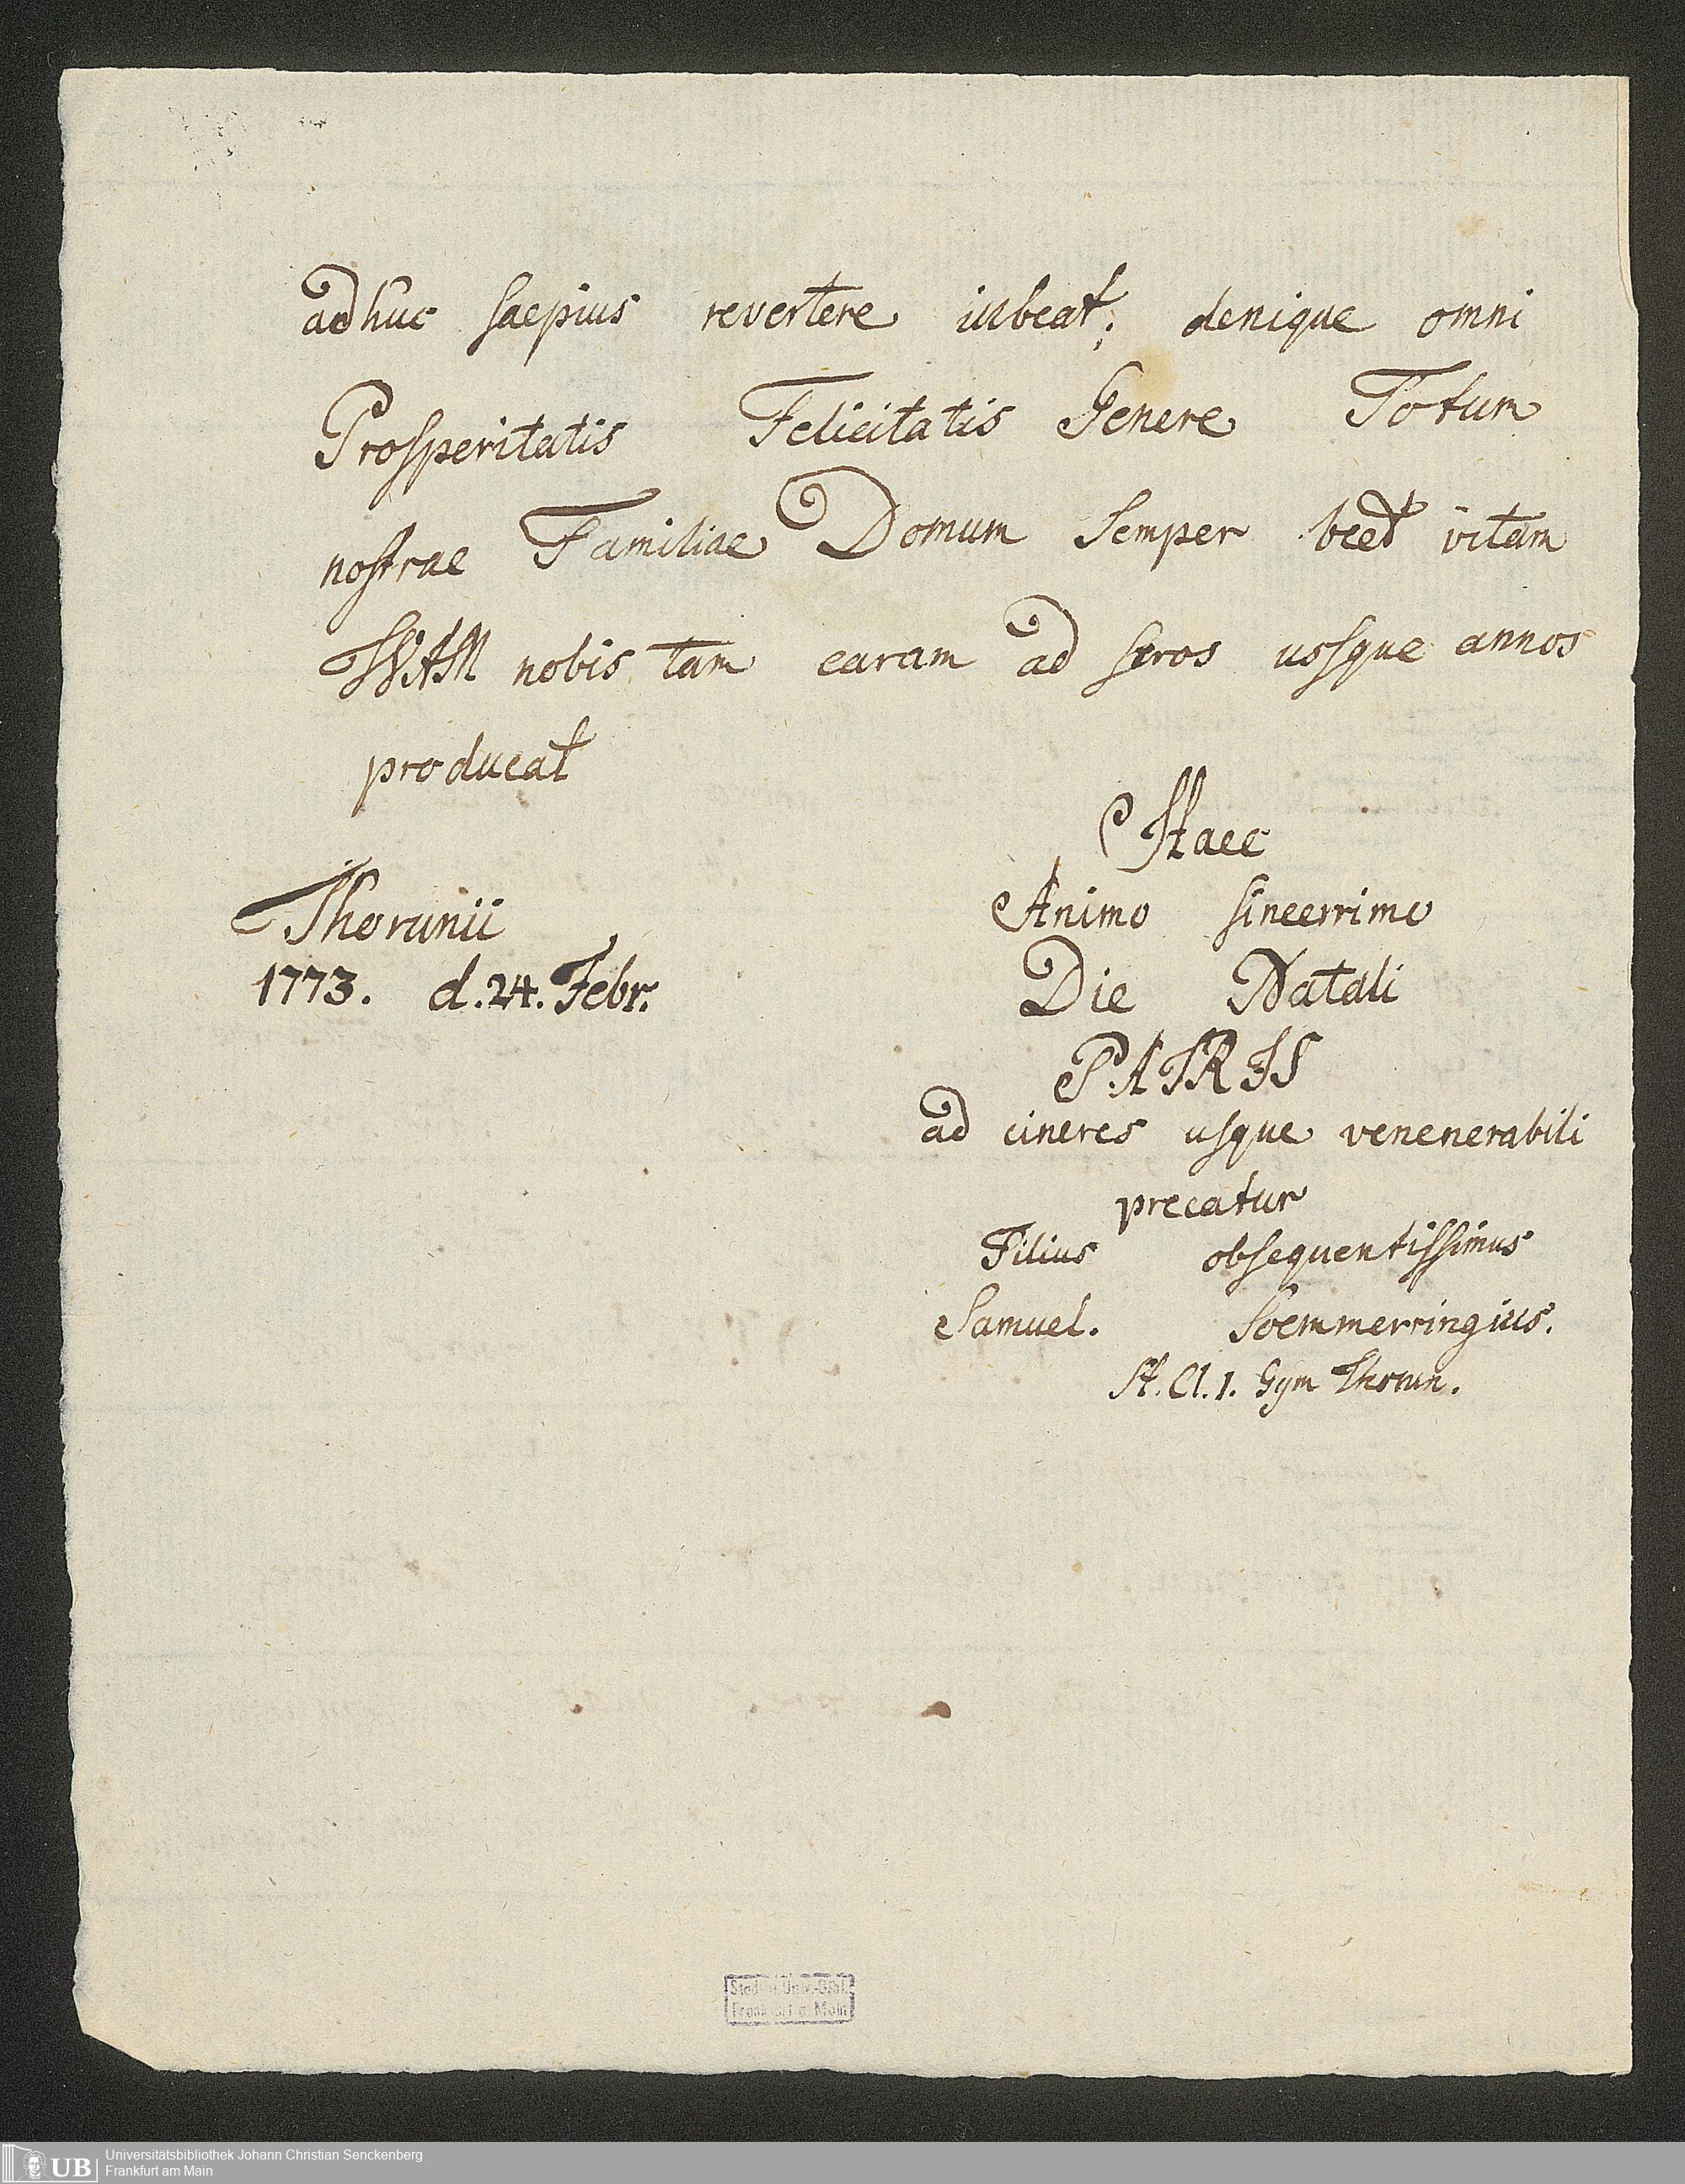 adhuc saepius revertere iubeat; denique omni
Prosperitatis Felicitatis Genere Totum
nostrae Familiae Domum semper beet vitam
SVAM nobis tam caram ad seros usque annos
producat
Haec
Animo sincerrimo
Thorunii
1773. d. 24. Febr.
Die Natali
PATRIS
ad cineres usque venenerabili
precatur
Filius obsequentissimus
Samuel. Soemmerringius.
St. Cl. 1. Gym Thorun.
Stadt- u. Univ.-Bibl.
Frankfurt a. Main
UB
Universitätsbibliothek Johann Christian Senckenberg
Frankfurt am Main